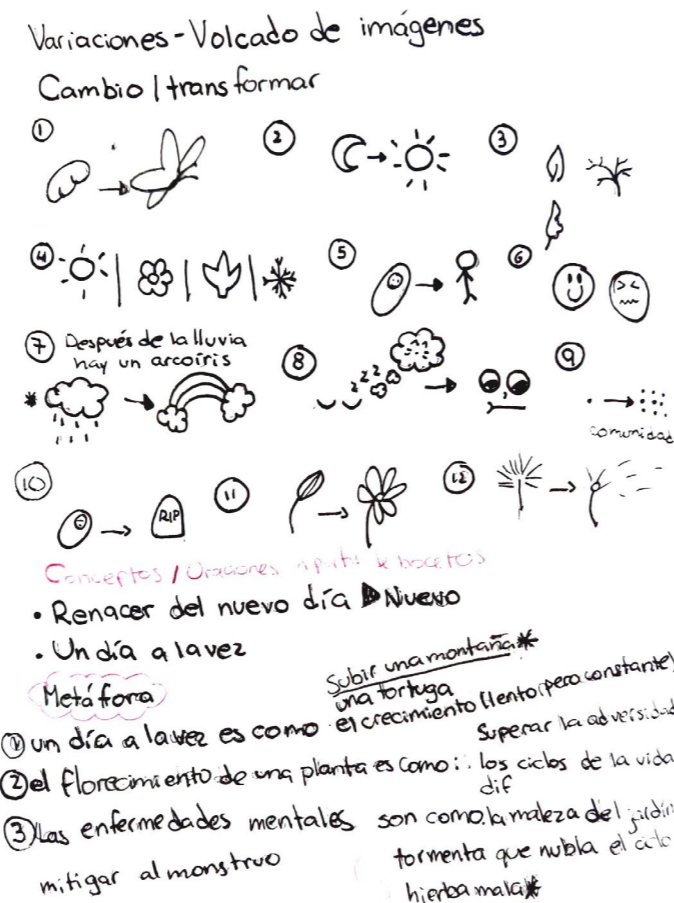 Variaciones - Volcado de imágenes
Cambio / transformar
1
2
3
4
5
6
7 Después de la lluvia
hay un arcoíris
8
zzz
9
comunidad
10
RIP
11
12
Conceptos / Oraciones a partir de bocetos
• Renacer del nuevo día Nuevo
• Un día a la vez
Metáfora
Subir una montaña*
una tortuga
1 un día a la vez es como el crecimiento (lento pero constante)
Superar la adversidad
2 el florecimiento de una planta es como: los ciclos de la vida
dif
3 Las enfermedades mentales son como: la maleza del jardín
tormenta que nubla el cielo
mitigar al monstruo
hierba mala*